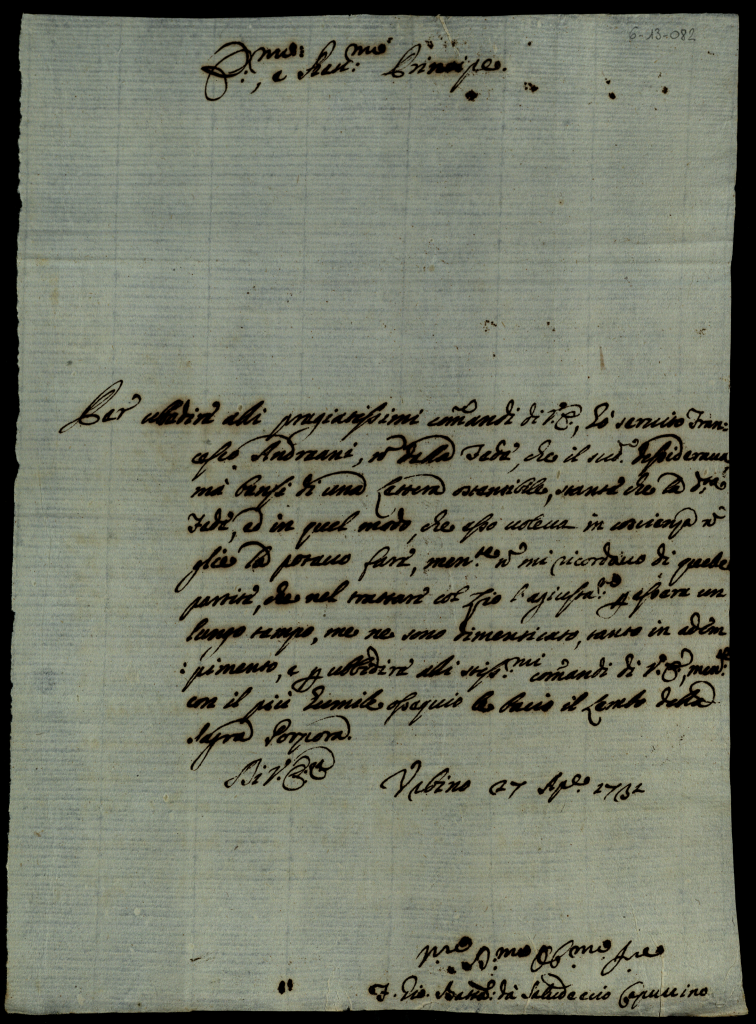 6-13-082
E.mo: e Reu.mo Principe.
Per ubedire alli pregiatissimi comandi di V.E., hò seruito Fran=
cesco Andreani, nò della Fede, che il sud.º desiderava,
mà bensi di una Lettera ostensibile, stante che la d.ta
Fede, ed in quel modo, che esso uoleva in coscienza nò
glie la potevo fare, men.tre nò mi ricordavo di quelle
partite, che nel trattare col Zio l'agiusta.to p essere un
lungo tempo, me ne sono dimenticato, tanto in adem
:pimento, e p ubbidire alli stiss.mi comandi di V.E., men.tre
con il più humile ossequio le bacio il Lembo della
Sagra Porpora.
Di V.E.za
Urbino 27 Ap.le 1732
V.mo D.mo Ob.mo Se.re
F. Gio. Batta: da Saludeccio Capuccino